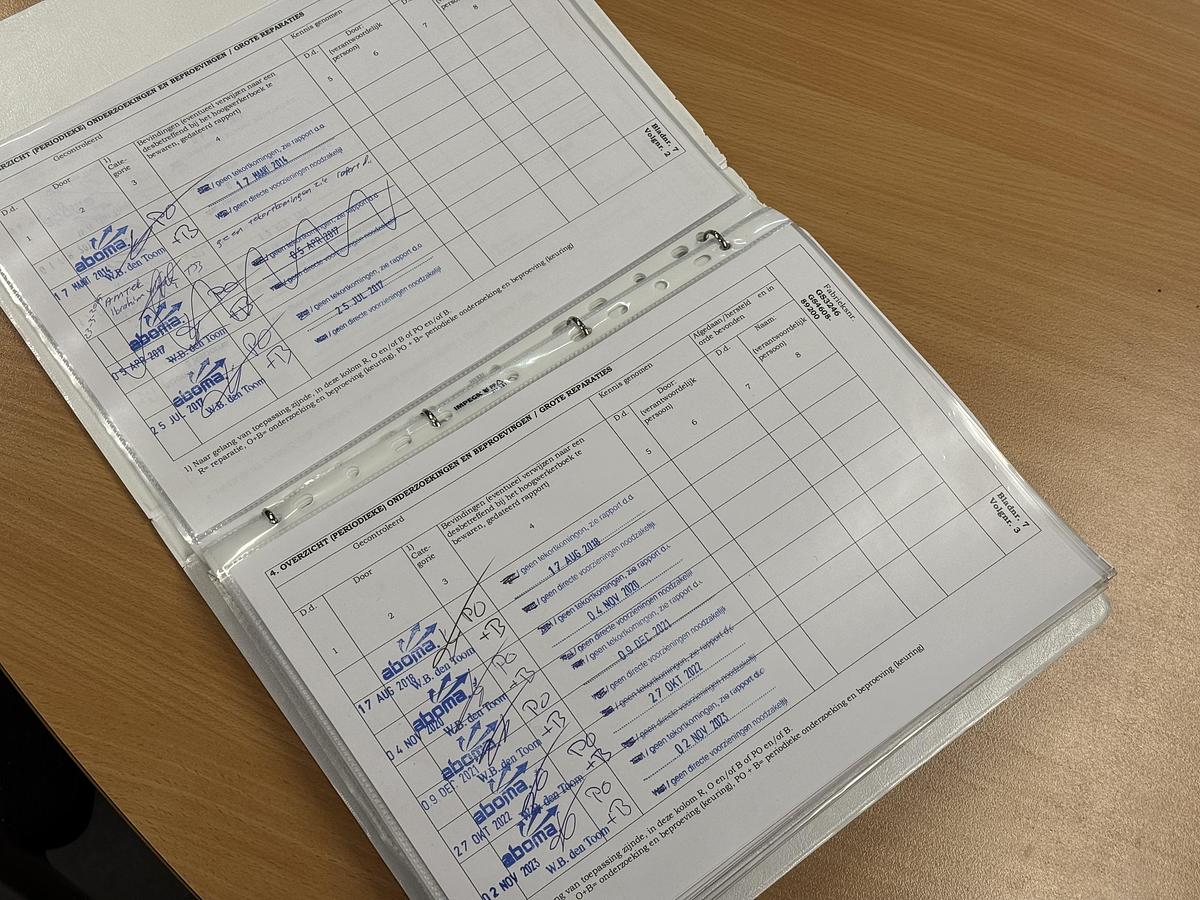 ERZICHT (PERIODIEKE) ONDERZOEKINGEN EN BEPROEVINGEN / GROTE REPARATIES
Gecontroleerd
Kennis genomen
D.d.
Door
1)
Cate-
gorie
Bevindingen (eventueel verwijzen naar een
desbetreffend bij het hoogwerkerboek te
bewaren, gedateerd rapport)
D.d.
Door:
(verantwoordelijk
persoon)
1
2
3
4
5
6
7
8
aboma.
17 MAART 2016
W.B. den Toom
PO
+B
/ geen tekortkomingen, zie rapport d.d.
17 MAART 2016
/ geen directe voorzieningen noodzakelijk
Ibrahim
aboma.
05 APR 2017
W.B. den Toom
PO
B
geen tekortkomingen, zie rapport d.d.
05 APR 2017
geen directe voorzieningen noodzakelijk
aboma.
25 JUL 2017
W.B. den Toom
PO
+B
/ geen tekortkomingen, zie rapport d.d.
25 JUL 2017
/ geen directe voorzieningen noodzakelijk
Bladnr. 7
Volgnr. 2
1) Naar gelang van toepassing zijnde, in deze kolom R, O en/of B of PO en/of B.
R= reparatie, O+B= onderzoeking en beproeving, PO + B= periodieke onderzoeking en beproeving (keuring)
4. OVERZICHT (PERIODIEKE) ONDERZOEKINGEN EN BEPROEVINGEN / GROTE REPARATIES
Fabrieksnr.
GS3246
GS4608-
89200
Gecontroleerd
Kennis genomen
Afgedaan/hersteld en in
orde bevonden
D.d.
Door
1)
Cate-
gorie
Bevindingen (eventueel verwijzen naar een
desbetreffend bij het hoogwerkerboek te
bewaren, gedateerd rapport)
D.d.
Door:
(verantwoordelijk
persoon)
D.d.
Naam:
(verantwoordelijk
persoon)
1
2
3
4
5
6
7
8
aboma.
17 AUG 2018
W.B. den Toom
PO
+B
/ geen tekortkomingen, zie rapport d.d.
17 AUG 2018
/ geen directe voorzieningen noodzakelijk
aboma.
04 NOV 2020
W.B. den Toom
PO
+B
/ geen tekortkomingen, zie rapport d.d.
04 NOV 2020
/ geen directe voorzieningen noodzakelijk
aboma.
09 DEC 2021
W.B. den Toom
PO
+B
/ geen tekortkomingen, zie rapport d.d.
09 DEC 2021
/ geen directe voorzieningen noodzakelijk
aboma.
27 OKT 2022
W.B. den Toom
PO
+B
/ geen tekortkomingen, zie rapport d.d.
27 OKT 2022
/ geen directe voorzieningen noodzakelijk
aboma.
02 NOV 2023
W.B. den Toom
PO
+B
/ geen tekortkomingen, zie rapport d.d.
02 NOV 2023
/ geen directe voorzieningen noodzakelijk
Bladnr. 7
Volgnr. 3
ang van toepassing zijnde, in deze kolom R, O en/of B of PO en/of B.
O+B= onderzoeking en beproeving (keuring), PO + B= periodieke onderzoeking en beproeving (keuring)